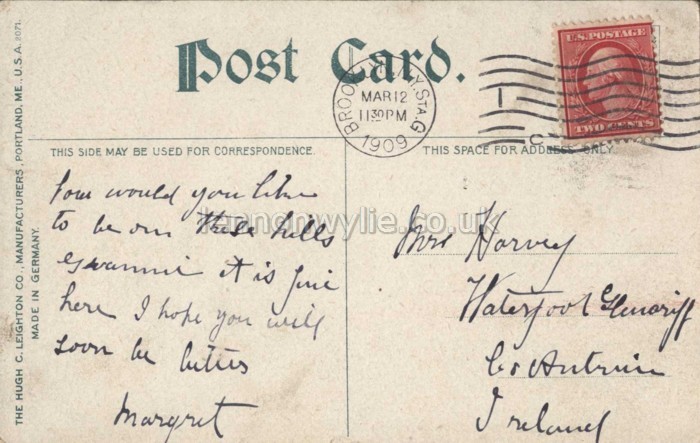 Post Card.
BROOKLYN, N.Y. STA. G
MAR 12
11 30 PM
1909
U.S. POSTAGE
TWO CENTS
THIS SIDE MAY BE USED FOR CORRESPONDENCE.
THIS SPACE FOR ADDRESS ONLY.
THE HUGH C. LEIGHTON CO., MANUFACTURERS, PORTLAND, ME., U.S.A. 
MADE IN GERMANY.
How would you like
to be on these hills
it is fine
here I hope you will
soon be better
Margret
Mrs Harvey
Waterfoot Glenariff
Co Antrim
Ireland
lennonwylie.co.uk